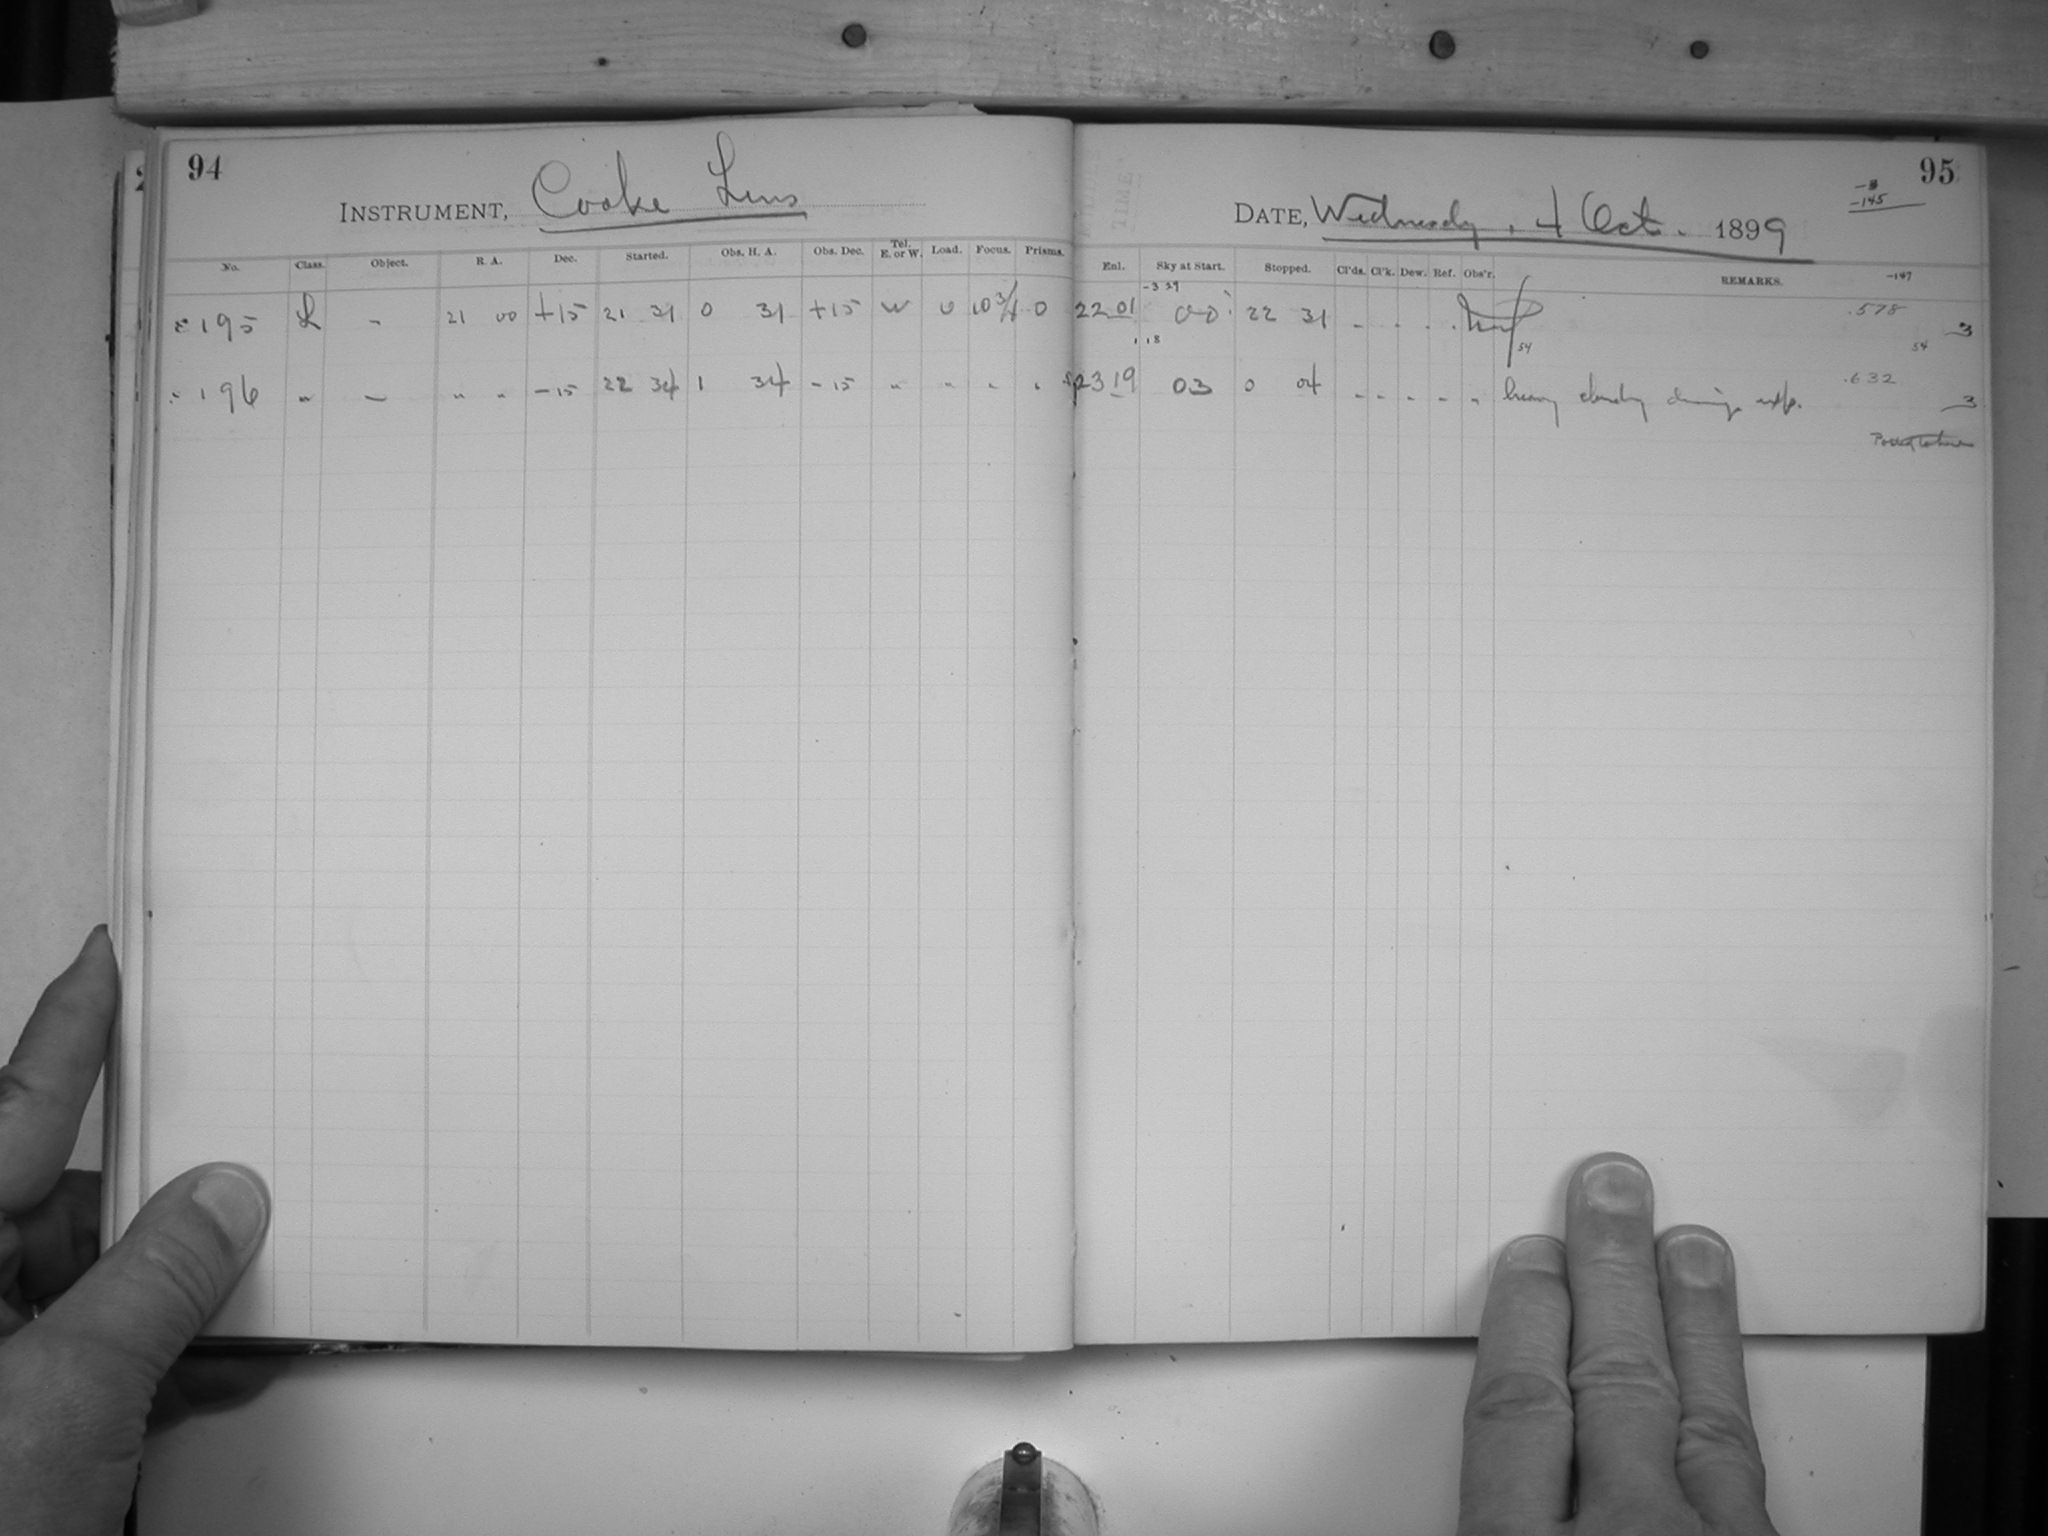 94
INSTRUMENT, Cooke Lens
No. Class. Object. R. A. Dec. Started. Obs. H. A. Obs. Dec. Tel. E. or W. Load. Focus. Prisms.
195 L - 21 00 +15 21 31 0 31 +15 W 0 10 3/4 0
196 " - " " -15 22 34 1 34 -15 " " " "
95
-3
-145
DATE, Wednesday, 4 Oct. 1899
Enl. Sky at Start. Stopped. Cl'ds. Cl'k. Dew. Ref. Obs'r. REMARKS. -147
-3 29
22 01 00 22 31 - - - - .578 3
1 18 54 54
23 19 03 0 04 - - - - " heavy cloudy during exp. .632 3